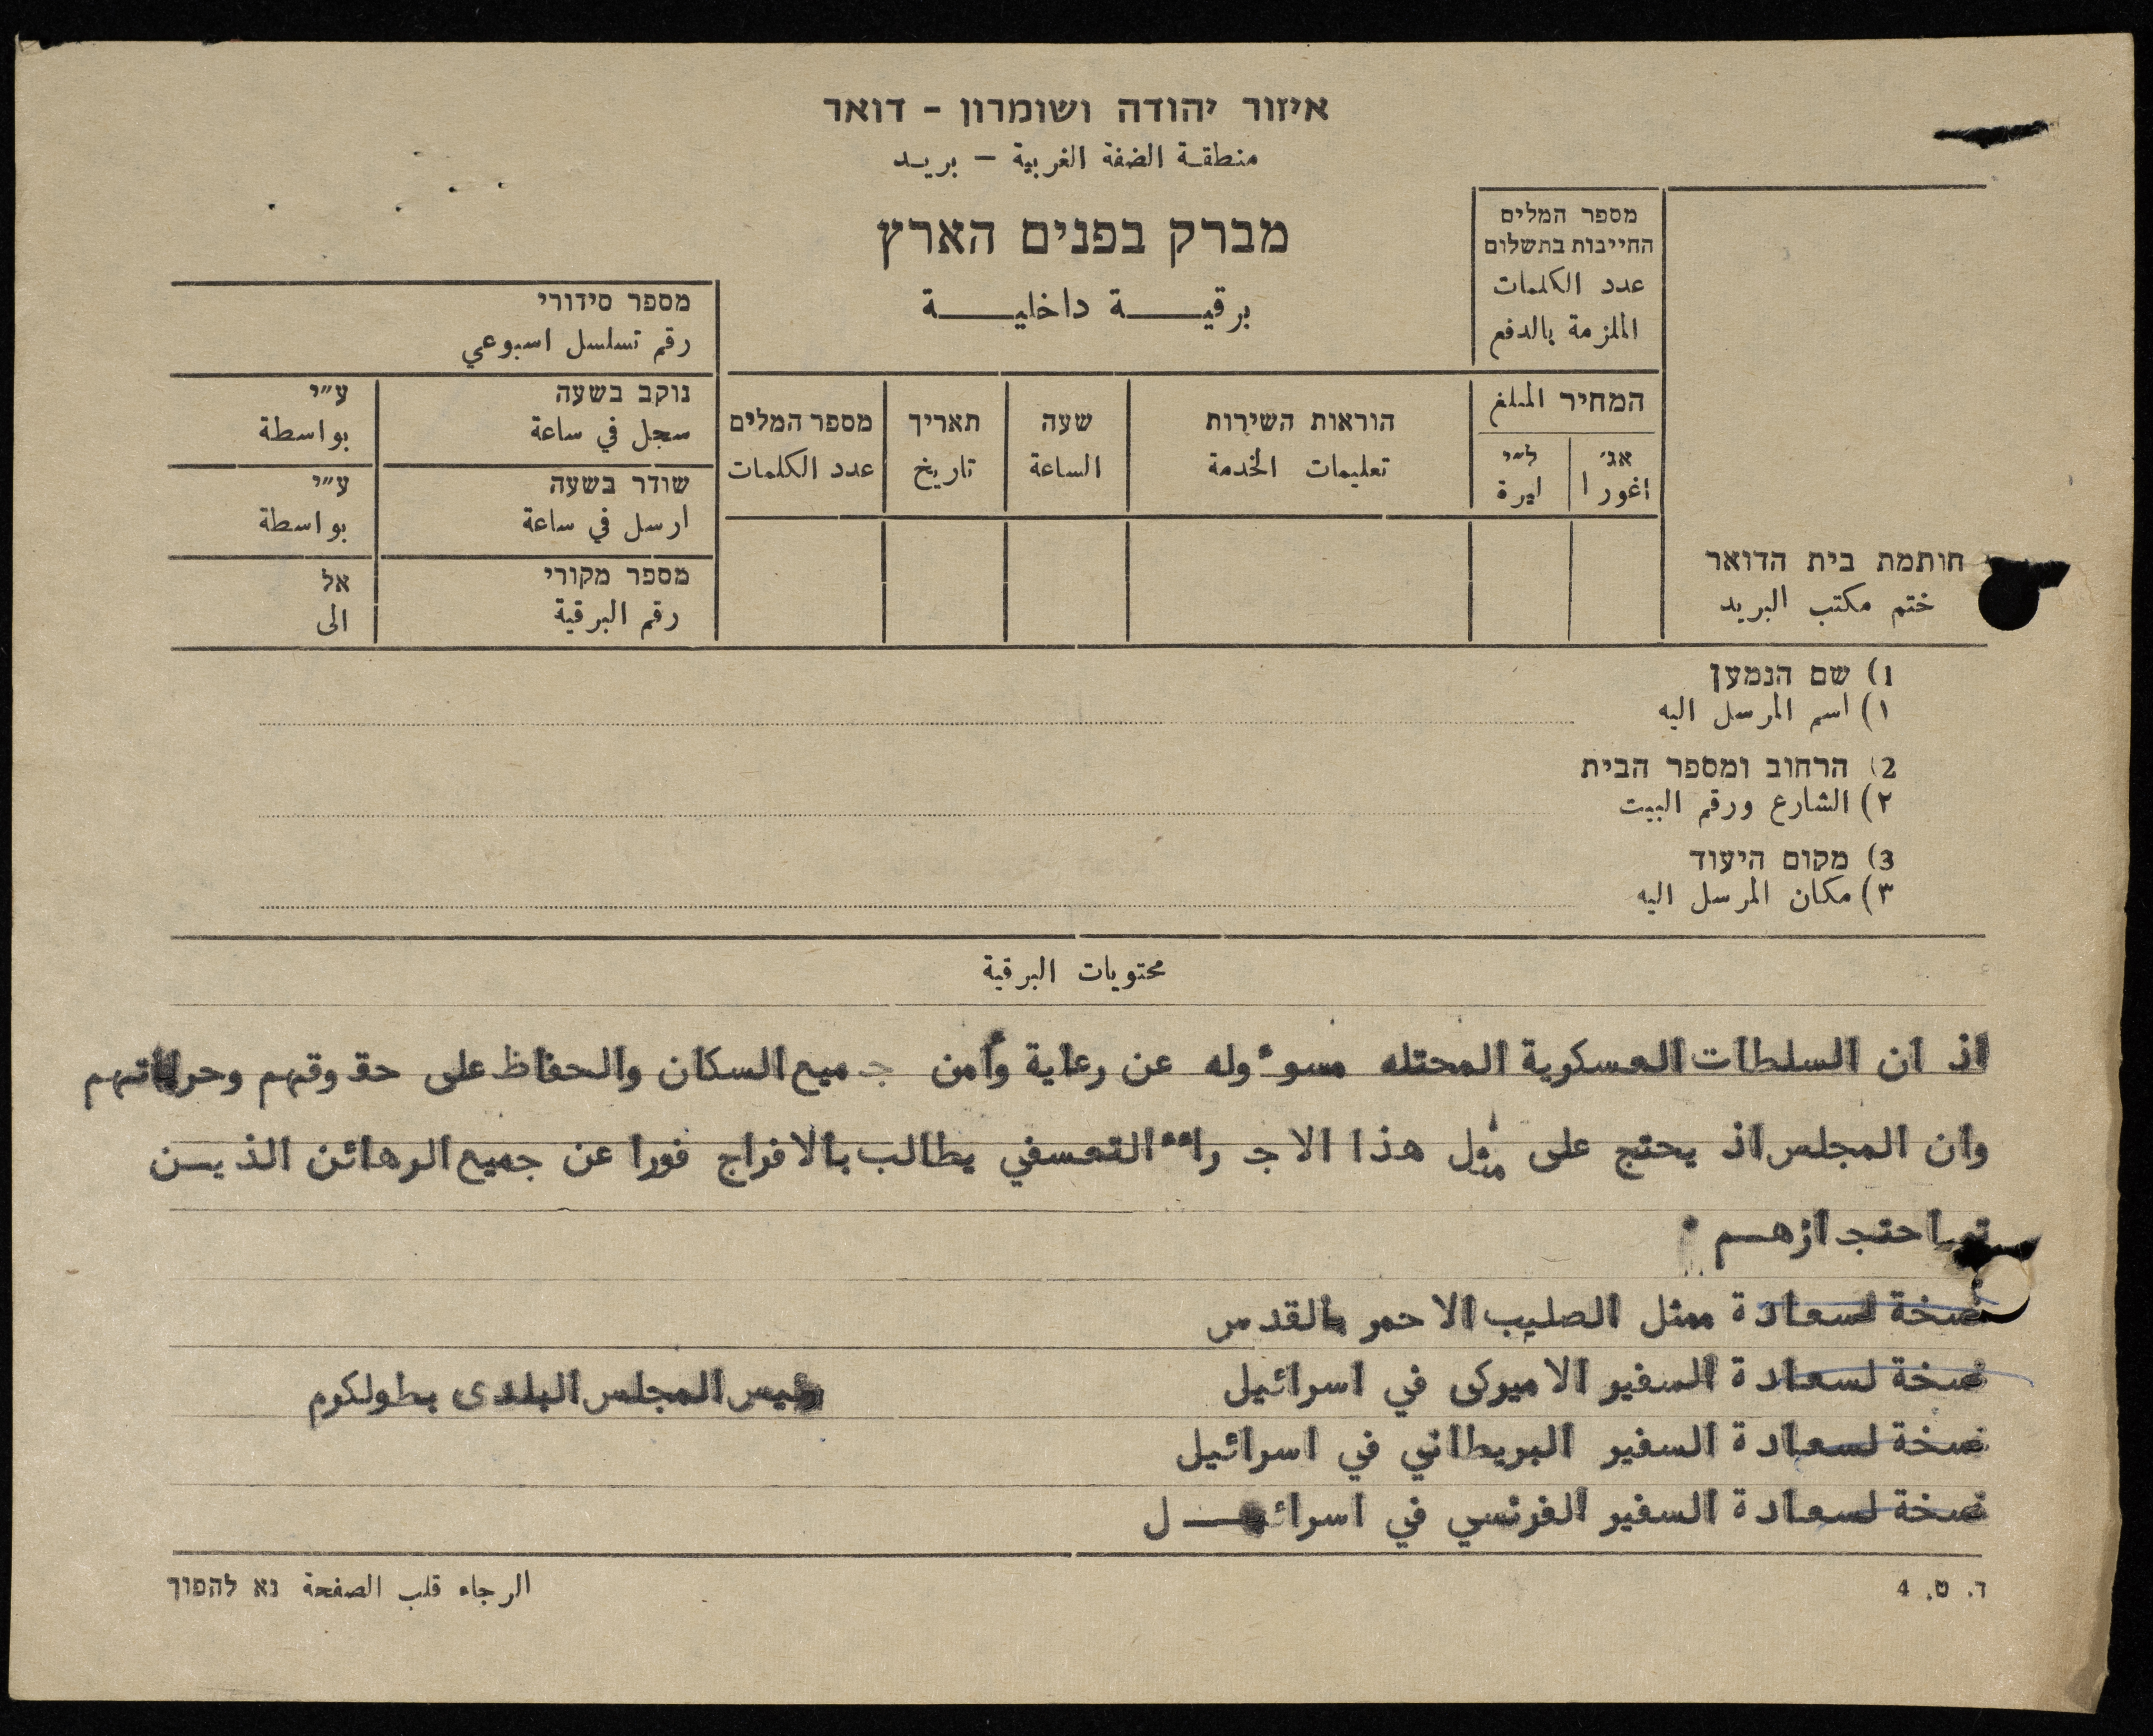 איזור יהודה ושומרון - דואר
منطقة الضفة الغربية – بريد
מברק בפנים הארץ
برقية داخلية
מספר המלים
החייבות בתשלום
عدد الكلمات
الملزمة بالدفع
מספר סידורי
رقم تسلسل اسبوعي
המחיר المبلغ
אג׳ ל״י
اغورا ليرة
הוראות השירות
تعليمات الخدمة
שעה
الساعة
תאריך
تاريخ
מספר המלים
عدد الكلمات
נוקב בשעה ע״י
سجل في ساعة بواسطة
שודר בשעה ע״י
ارسل في ساعة بواسطة
מספר מקורי אל
رقم البرقية الى
חותמת בית הדואר
ختم مكتب البريد
1) שם הנמען
١) اسم المرسل اليه
2) הרחוב ומספר הבית
٢) الشارع ورقم البيت
3) מקום היעוד
٣) مكان المرسل اليه
محتويات البرقية
اذ ان السلطات العسكرية المحتله مسوءوله عن رعاية وأمن جميع السكان والحفاظ على حقوقهم وحرياتهم
وان المجلس اذ يحتج على مثل هذا الاجراء التعسفي يطالب بالافراج فورا عن جميع الرهائن الذيسن
تم احتجازهم .
نسخة لسعادة ممثل الصليب الاحمر بالقدس
نسخة لسعادة السفير الاميركى في اسرائيل
رئيس المجلس البلدى بطولكرم
نسخة لسعادة السفير البريطاني في اسرائيل
نسخة لسعادة السفير الفرنسي في اسرائيل
ד. ט. 4
الرجاء قلب الصفحة נא להפוך